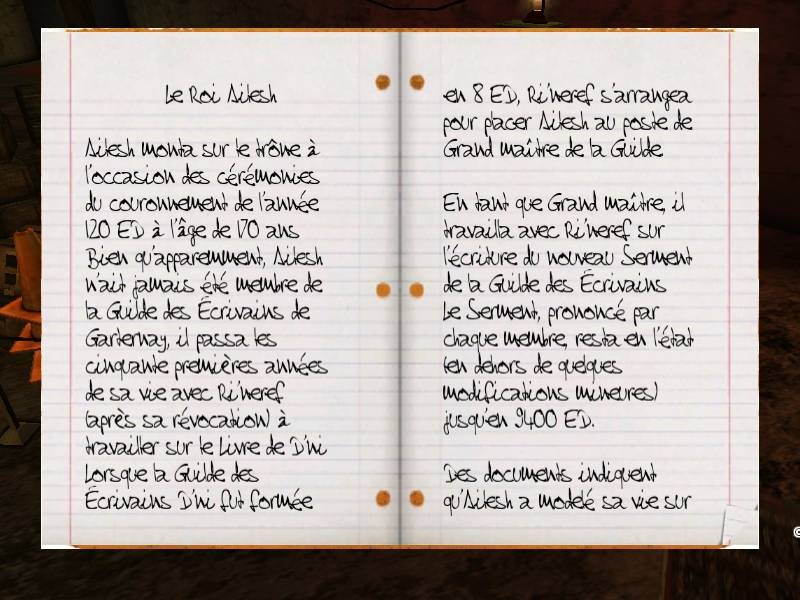 Le Roi Ailesh
Ailesh monta sur le trône à
l'occasion des cérémonies
du couronnement de l'année
120 ED à l'âge de 170 ans
Bien qu'apparemment, Ailesh
n'ait jamais été membre de
la Guilde des Écrivains de
Garternay, il passa les
cinquante premières années
de sa vie avec Ri'neref
(après sa révocation) à
travailler sur le Livre de D'ni
Lorsque la Guilde des
Écrivains D'ni fut formée
en 8 ED, Ri'neref s'arrangea
pour placer Ailesh au poste de
Grand maître de la Guilde
En tant que Grand maître, il
travailla avec Ri'neref sur
l'écriture du nouveau Serment
de la Guilde des Écrivains
Le Serment, prononcé par
chaque membre, resta en l'état
(en dehors de quelques
modifications mineures)
jusqu'en 9400 ED.
Des documents indiquent
qu'Ailesh a modelé sa vie sur
©